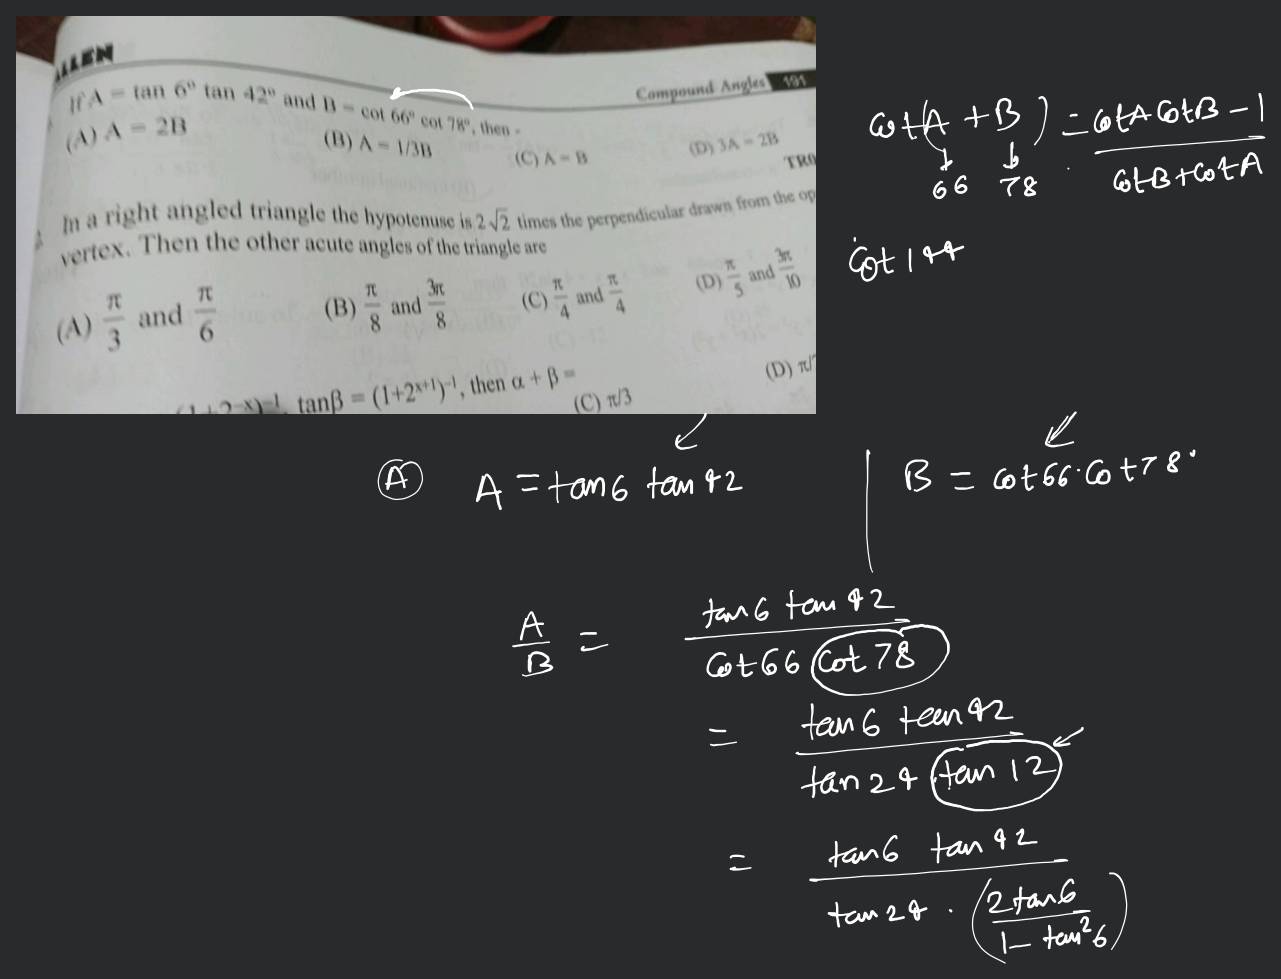 ALLEN
Compound Angles 191
If A = tan 6° tan 42° and B = cot 66° cot 78°, then -
(A) A = 2B (B) A = 1/3B (C) A = B (D) 3A = 2B
TRO
In a right angled triangle the hypotenuse is 2√2 times the perpendicular drawn from the op
vertex. Then the other acute angles of the triangle are
(A) π/3 and π/6 (B) π/8 and 3π/8 (C) π/4 and π/4 (D) π/5 and 3π/10
tanβ = (1+2^(x+1))^-1, then α + β =
(C) π/3 (D) π/
cot(A + B) = (cotA cotB - 1)/(cotB + cotA)
66 78
cot 144
(A) A = tan 6 tan 42 | B = cot 66 · cot 78°
A/B = (tan 6 tan 42)/(cot 66 cot 78)
= (tan 6 tan 42)/(tan 24 tan 12)
= (tan 6 tan 42)/(tan 24 · (2 tan 6/(1 - tan² 6)))